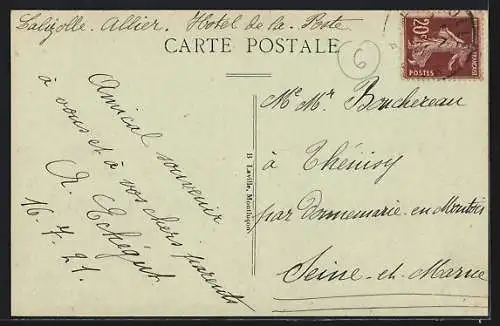 Lalizolle. Allier. Hotel de la Poste
CARTE POSTALE
6
20c
POSTES
Amical souvenir
à vous et à vos chers parents
16.7.21.
B Laville, Montluçon
Me Mr Bouchereau
à Thénisy
par Donnemarie en Montois
Seine-et-Marne